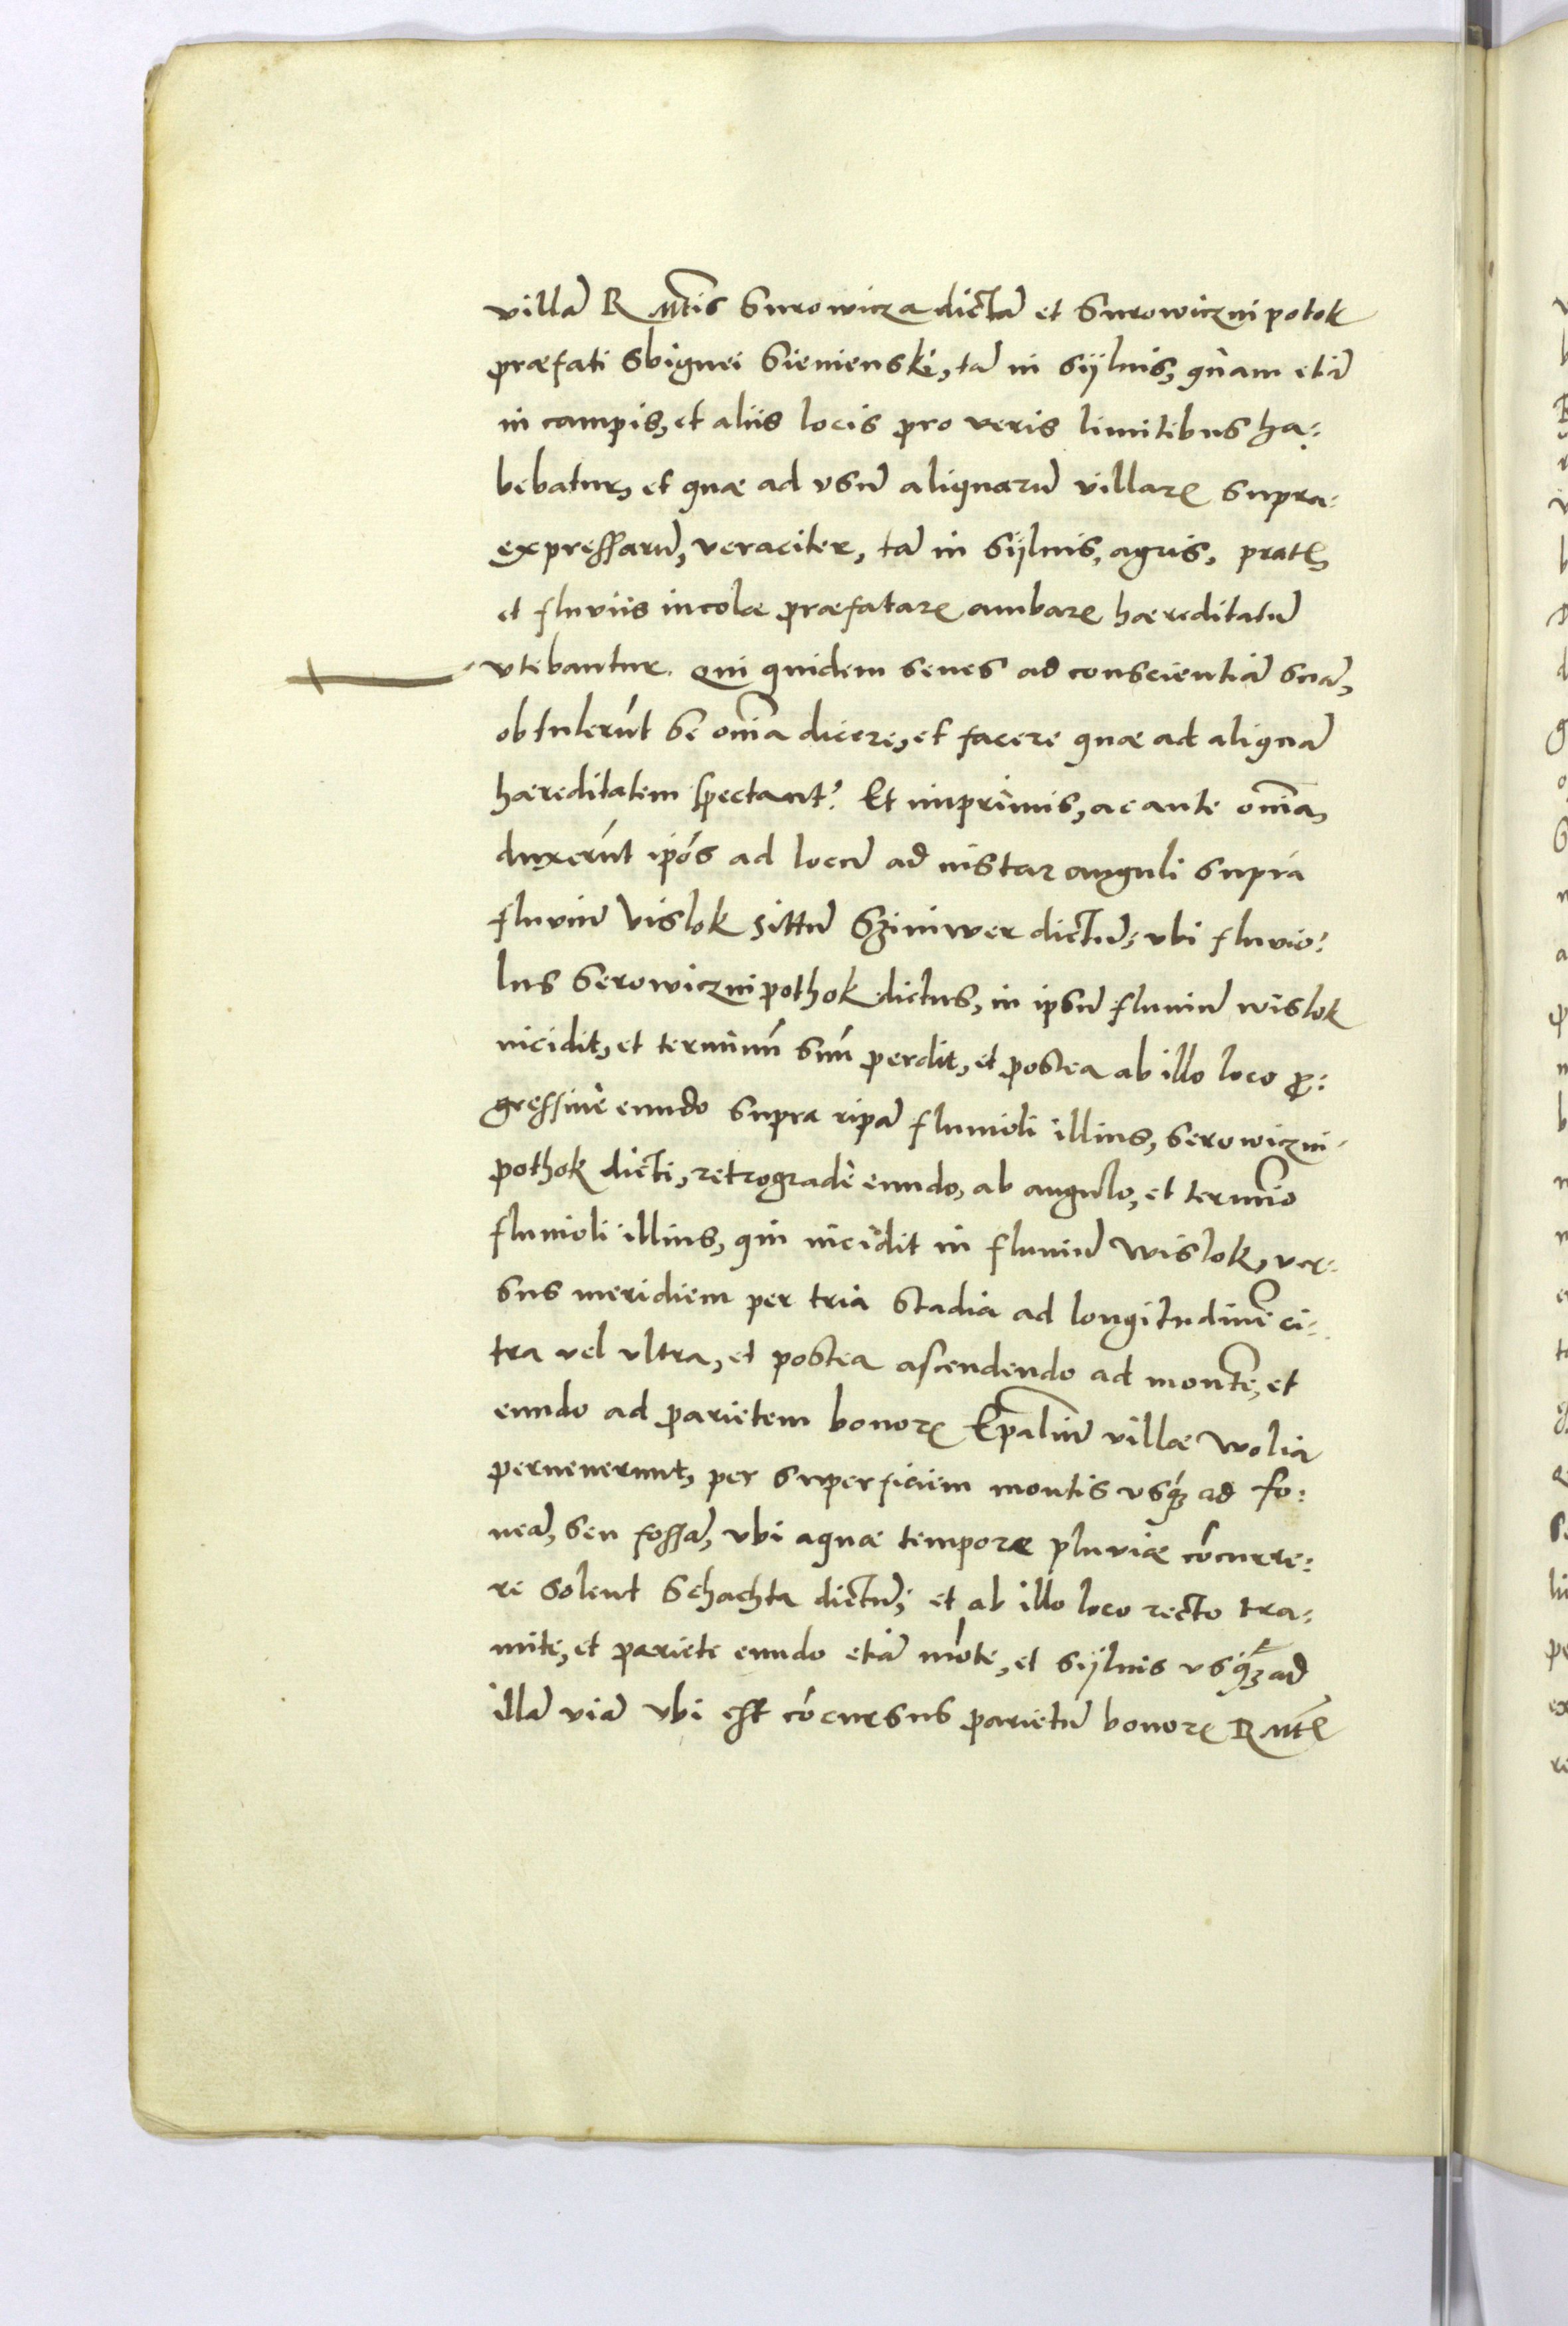 villā R Mtis Surowicza dictā et Surowiczni potok
præfati Sbignei Sienienski, tā in sÿluis, quam etiā
in campis, et aliis locis pro veris limitibus ha⸗
bebatur, et quæ ad vsū aliquarū villarꝝ supra⸗
expressarū, veraciter, tā in sÿluis, agris, pratꝭ,
et fluviis incolæ præfatarꝝ ambarꝝ hæreditatū
vtebantur. Qui quidem senes ad conscientiā suā,
obtulerūt se oīa dicere, et facere quæ ad aliquā
hæreditatem spectant? Et imprimis, ac ante oīa,
duxerūt ipōs ad locū ad instar anguli supra
fluviū Vislok sittū Sziniwer dictū, vbi fluvio⸗
lus Serowiczni pothok dictus, in ipsū fluuiū wislok
incidit, et terminū suū perdit, et postea ab illo loco ꝓ⸗
gressiuè eundo supra ripā fluuioli illius, Serowiczni
pothok dicti, retrogradè eundo, ab angulo, et termīo
fluuioli illius, qui incidit in fluuiū Wislok, ver⸗
sus meridiem per tria stadia ad longitudinē ci⸗
tra vel vltra, et postea ascendendo ad montē, et
eundo ad parietem bonorꝝ Epaliū villæ Wolia
peruenerunt, per superficiem montis vsqꝫ ad fo⸗
ueā, seu fossā, vbi aquæ tempore pluviæ cōcurre⸗
re solent Schachta dictū, et ab illo loco recto tra⸗
mite, et pariete eundo etiā mōte, et sÿluis vsqꝫ ad
illā viā vbi est cōcursus parietū bonorꝝ R Mtꝭ